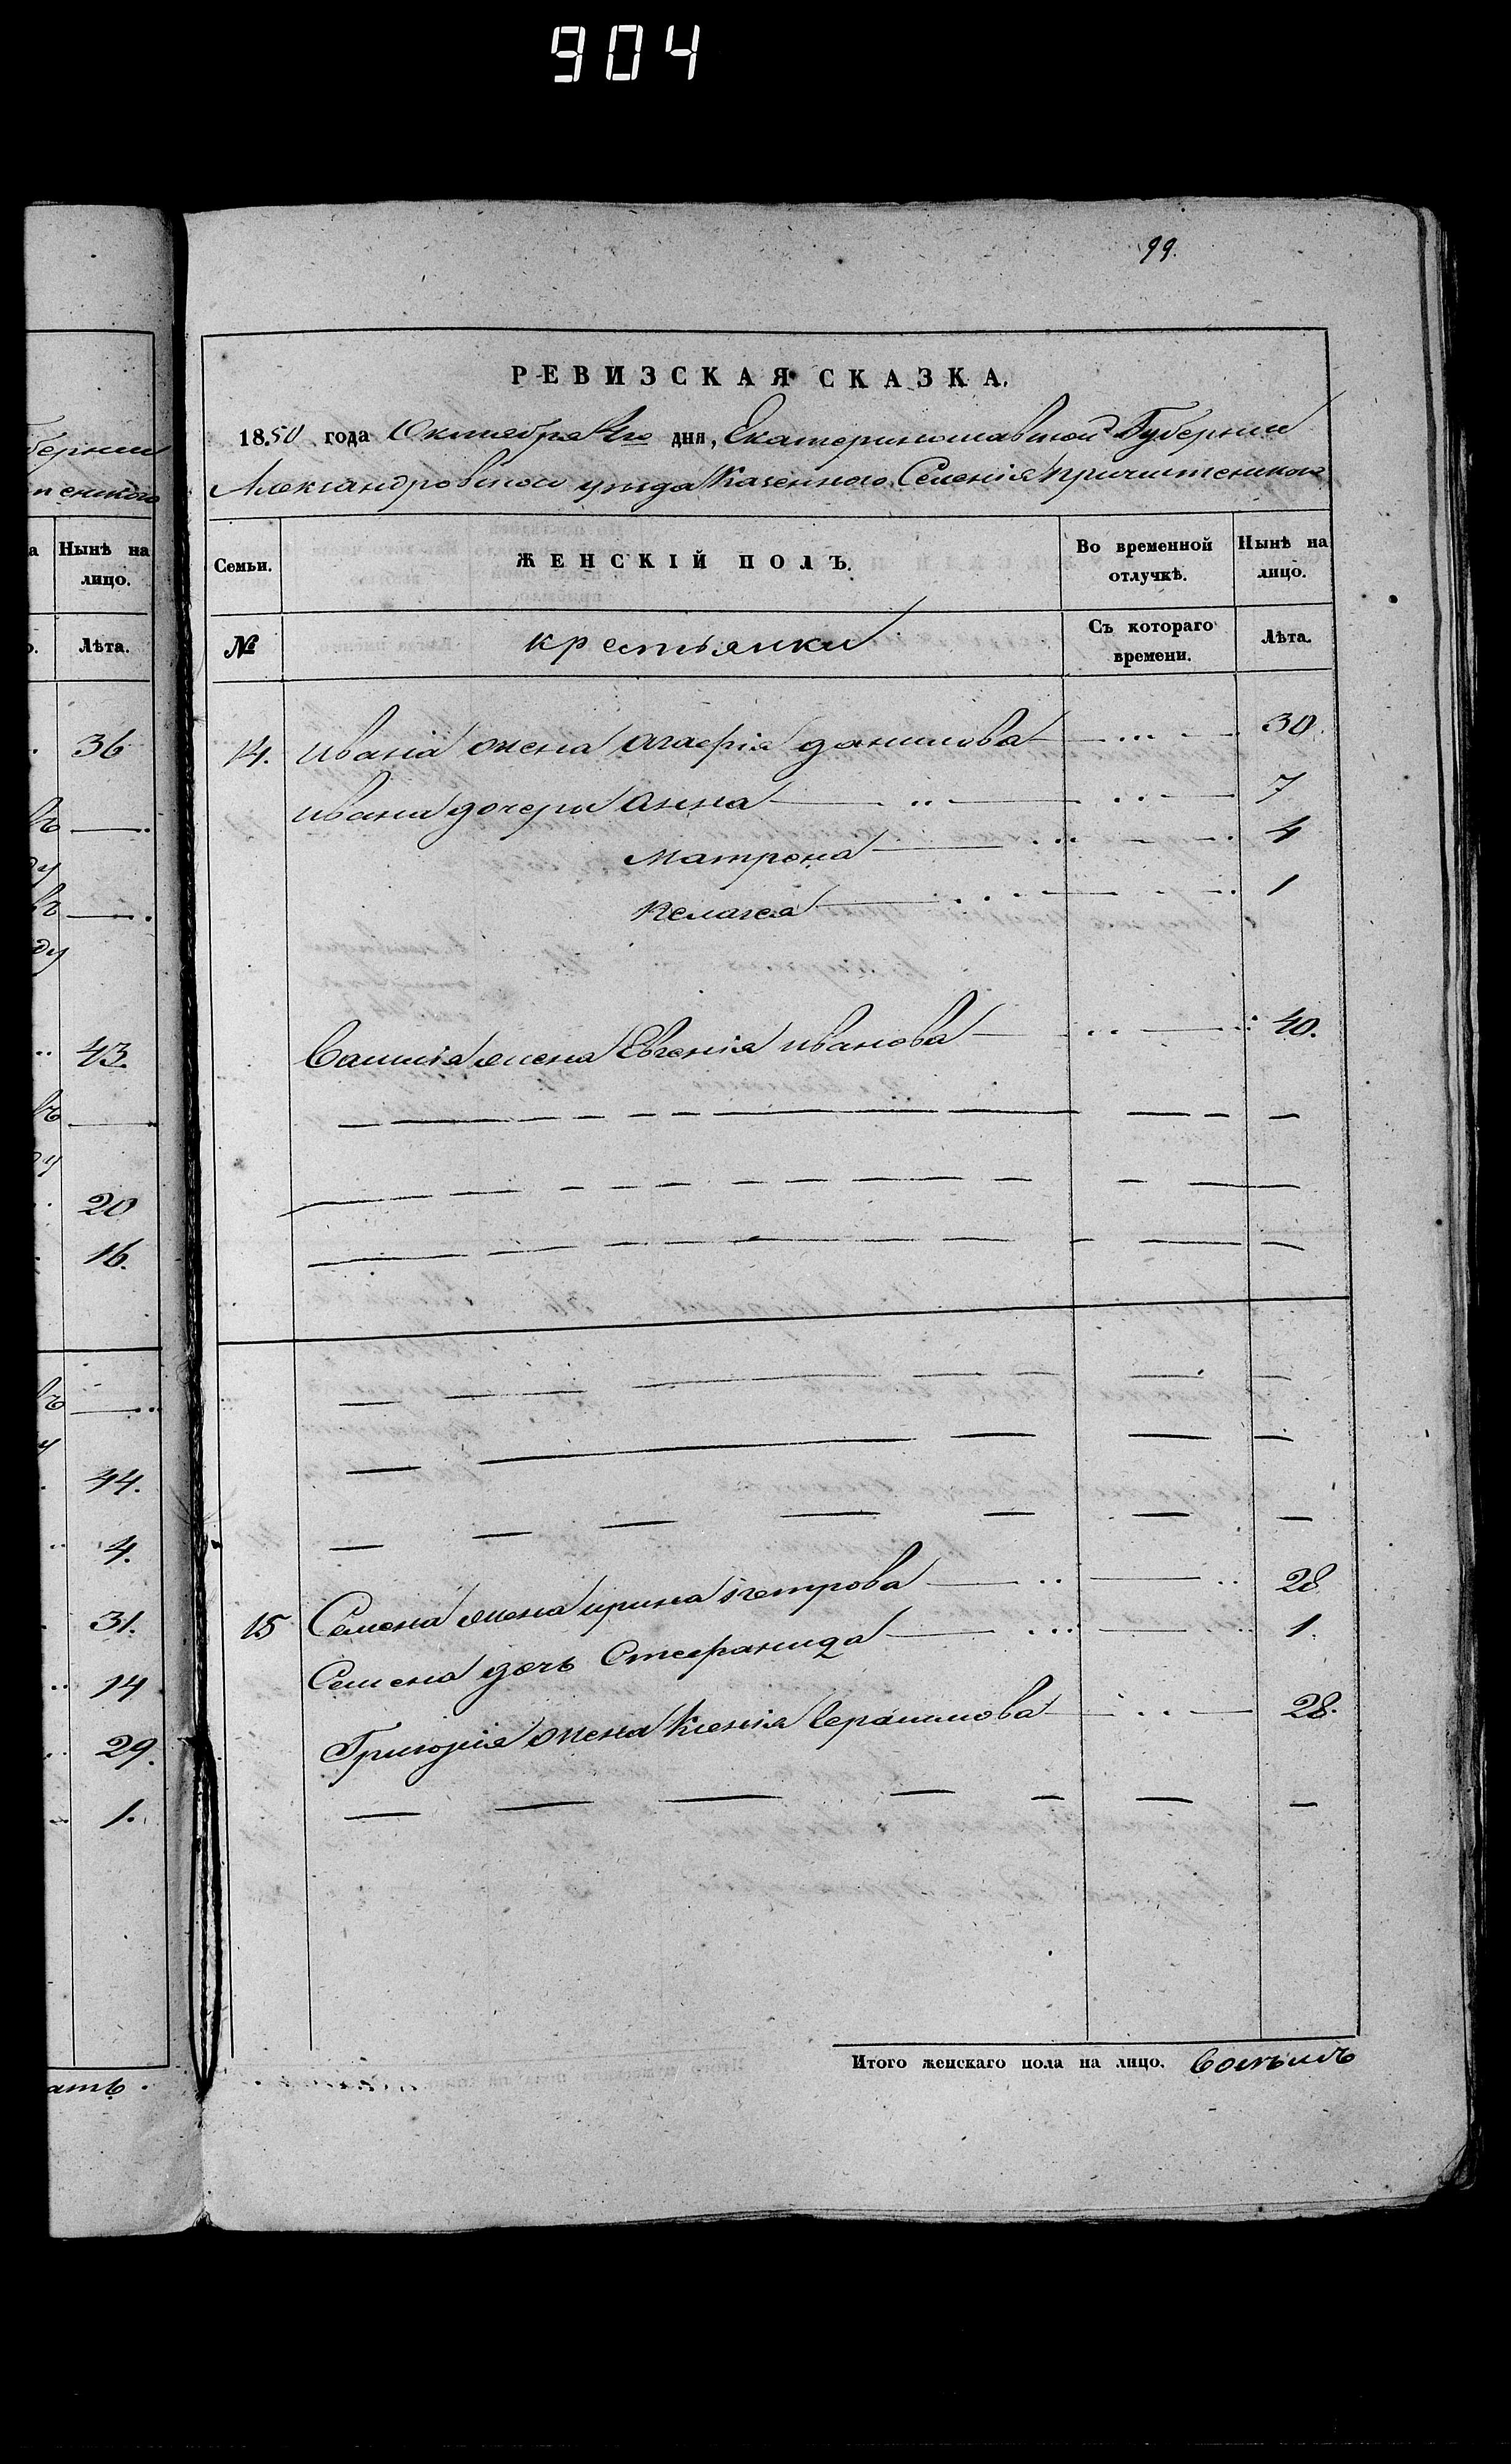 904
99.
РЕВИЗСКАЯ СКАЗКА.
1850 года Октября 4го дня, Екатеринославской Губернии
Александровской уезда Казенного Селенія Пречистенского
Семьи.
ЖЕНСКІЙ ПОЛЪ.
Во временной отлучкѣ.
Нынѣ на лицо.
№
крестьянки
Съ котораго времени.
Лѣта.
14. Ивана жена Агафія данилова 30.
Ивана дочери Анна 7
Матрона 4
Пелагея 1
Василія жена Евгенія иванова 40.
15 Семена жена ирина петрова 28
Семена дочь Стефанида 1.
Григорія жена Ксенія 28.
Итого женскаго пола на лицо. восемь
губернии
Нынѣ на лицо.
Лѣта.
36
43.
20
16.
44.
4.
31.
14
29.
1.